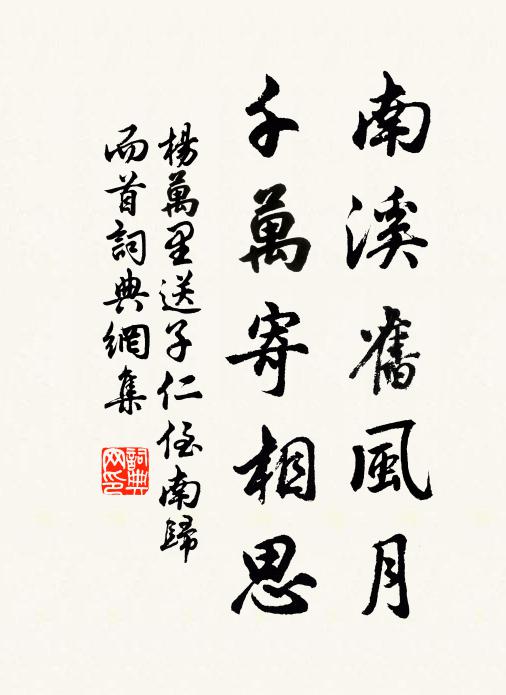 南溪舊風月
千萬寄相思
楊萬里送子仁侄南歸
两首詞典網集
詞典网印